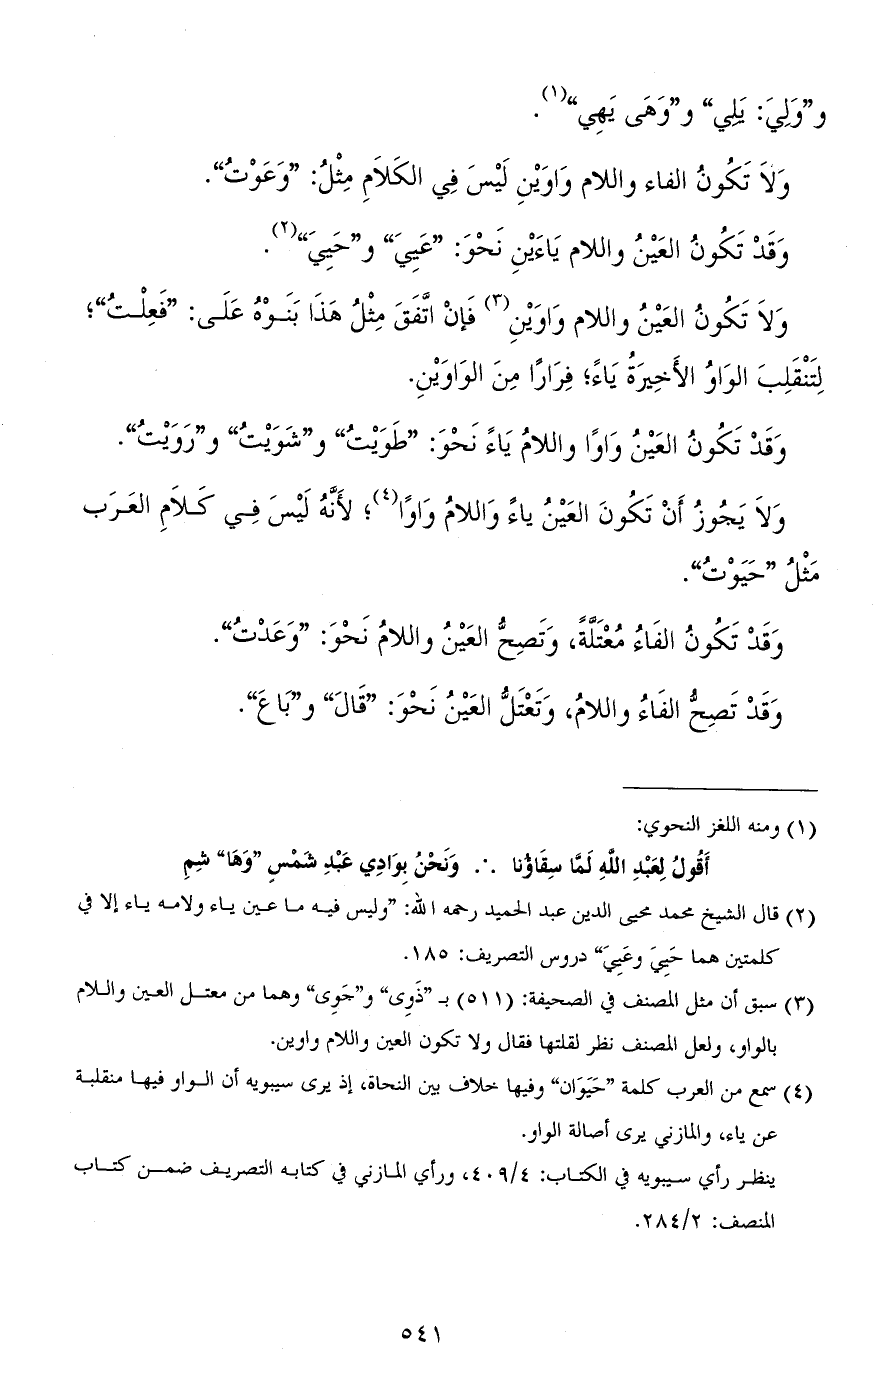 و”وَلِيَ: يَلِي“ و”وَهَى يَهِي“(١).
وَلاَ تَكُونُ الفاء واللام وَاوَيْنِ لَيْسَ فِي الكَلاَمِ مِثْلُ: ”وَعَوْتُ“.
وَقَدْ تَكُونُ العَيْنُ واللام يَاءَيْنِ نَحْوَ: ”عَيِيَ“ و”حَيِيَ“(٢).
وَلاَ تَكُونُ العَيْنُ واللام وَاوَيْنِ(٣) فَإِنْ اتَّفَقَ مِثْلُ هَذَا بَنَـوْهُ عَلَـى: ”فَعِلْـتُ“؛
لِتَنْقَلِبَ الوَاوُ الأَخِيرَةُ يَاءً؛ فِرَارًا مِنَ الوَاوَيْنِ.
وَقَدْ تَكُونُ العَيْنُ وَاوًا واللامُ يَاءً نَحْوَ: ”طَوَيْتُ“ و”شَوَيْتُ“ و”رَوَيْتُ“.
وَلاَ يَجُوزُ أَنْ تَكُونَ العَيْنُ ياءً وَاللامُ وَاوًا(٤)؛ لأَنَّهُ لَيْسَ فِـي كَـلاَمِ العَـرَب
مَثْلُ ”حَيَوْتُ“.
وَقَدْ تَكُونُ الفَاءُ مُعْتَلَّةً، وَتَصِحُّ العَيْنُ واللامُ نَحْوَ: ”وَعَدْتُ“.
وَقَدْ تَصِحُّ الفَاءُ واللامُ، وَتَعْتَلُّ العَيْنُ نَحْوَ: ”قَالَ“ و”بَاعَ“.
(١) ومنه اللغز النحوي:
أَقُولُ لِعَبْدِ اللَّهِ لَمَّا سِقَاؤُنا ∴ وَنَحْنُ بِوَادِي عَبْدِ شَمْسٍ ”وَهَا“ شِمِ
(٢) قال الشيخ محمد محيى الدين عبد الحميد رحمه الله: ”وليس فيـه مـا عـين يـاء ولامـه يـاء إلا في
كلمتين هما حَيِيَ وعَيِيَ“ دروس التصريف: ١٨٥.
(٣) سبق أن مثل المصنف في الصحيفة: (٥١١) بـ ”ذَوِى“ و”جَوِى“ وهما من معتـل العـين والـلام
بالواو، ولعل المصنف نظر لقلتها فقال ولا تكون العين واللام واوين.
(٤) سمع من العرب كلمة ”حَيَوَان“ وفيها خلاف بين النحاة، إذ يرى سيبويه أن الـواو فيهـا منقلبـة
عن ياء، والمازني يرى أصالة الواو.
ينظـر رأي سـيبويه في الكتـاب: ٤/ ٤٠٩، ورأي المـازني في كتابـه التصريـف ضمـن كتـاب
المنصف: ٢/ ٢٨٤.
٥٤١